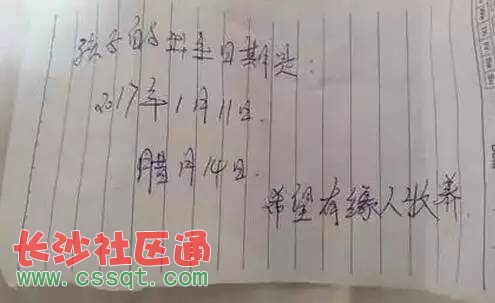 孩子的出生日期是:
2017年1月11日.
腊月14日.
希望有缘人收养.
长沙社区通
www.cssqt.com